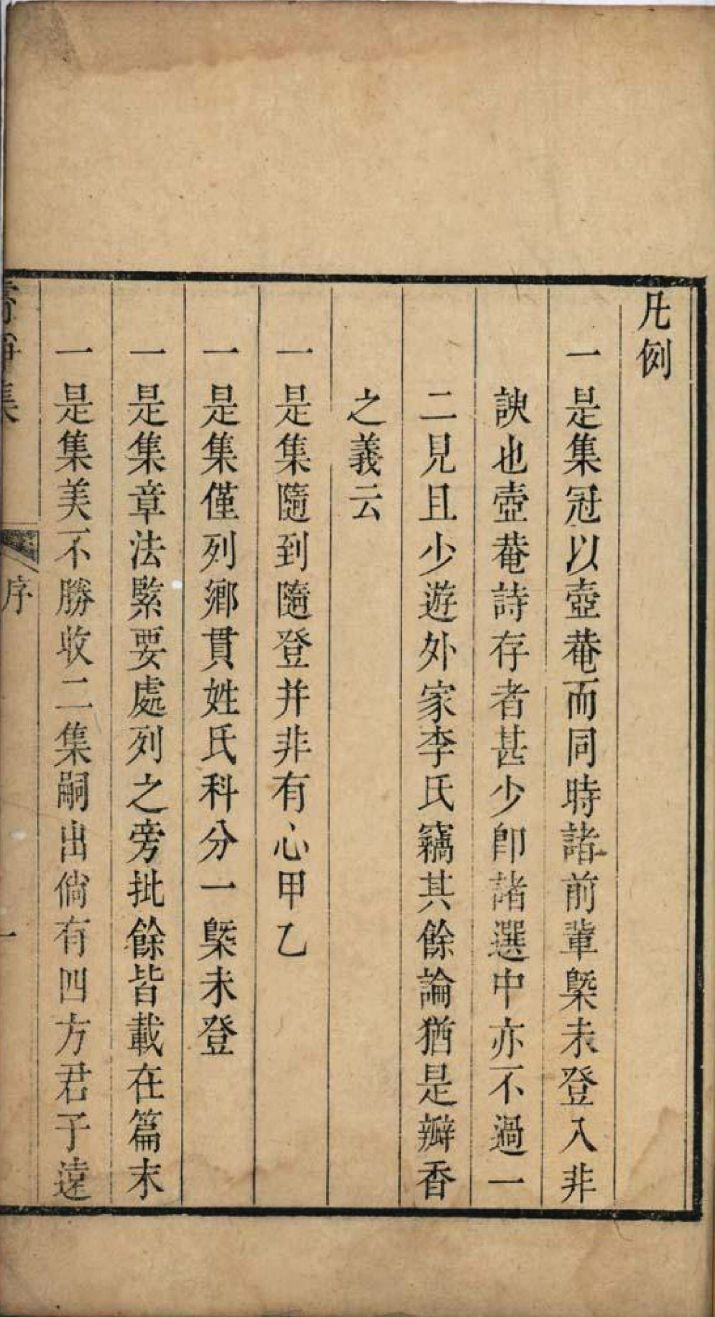 凡例
一是集冠以壺菴而同時諸前輩槩未登入非
諛也壺菴詩存者甚少卽諸選中亦不過一
二見且少遊外家李氏竊其餘論猶是瓣香
之義云
一是集隨到隨登并非有心甲乙
一是集僅列鄉貫姓氏科分一槩未登
一是集章法緊要處列之旁批餘皆載在篇末
一是集美不勝收二集嗣出倘有四方君子遠
集
序
一